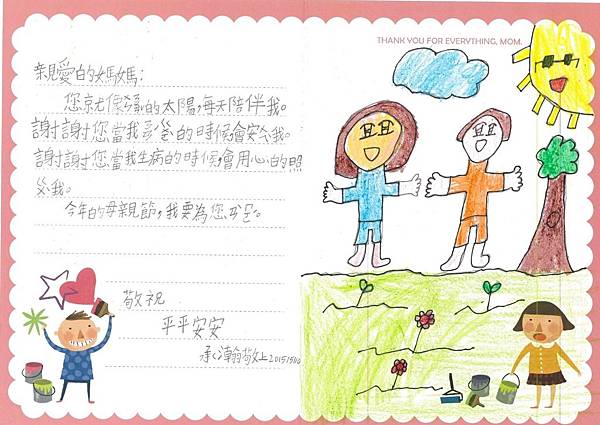 THANK YOU FOR EVERYTHING, MOM.
親愛的媽媽：
您就像的太陽，每天陪伴我。
謝謝您當我的時候會安我。
謝謝您當我生病的時候，會用心的照
我。
今年的母親節，我要為您。
敬祝
平平安安
瀚敬上